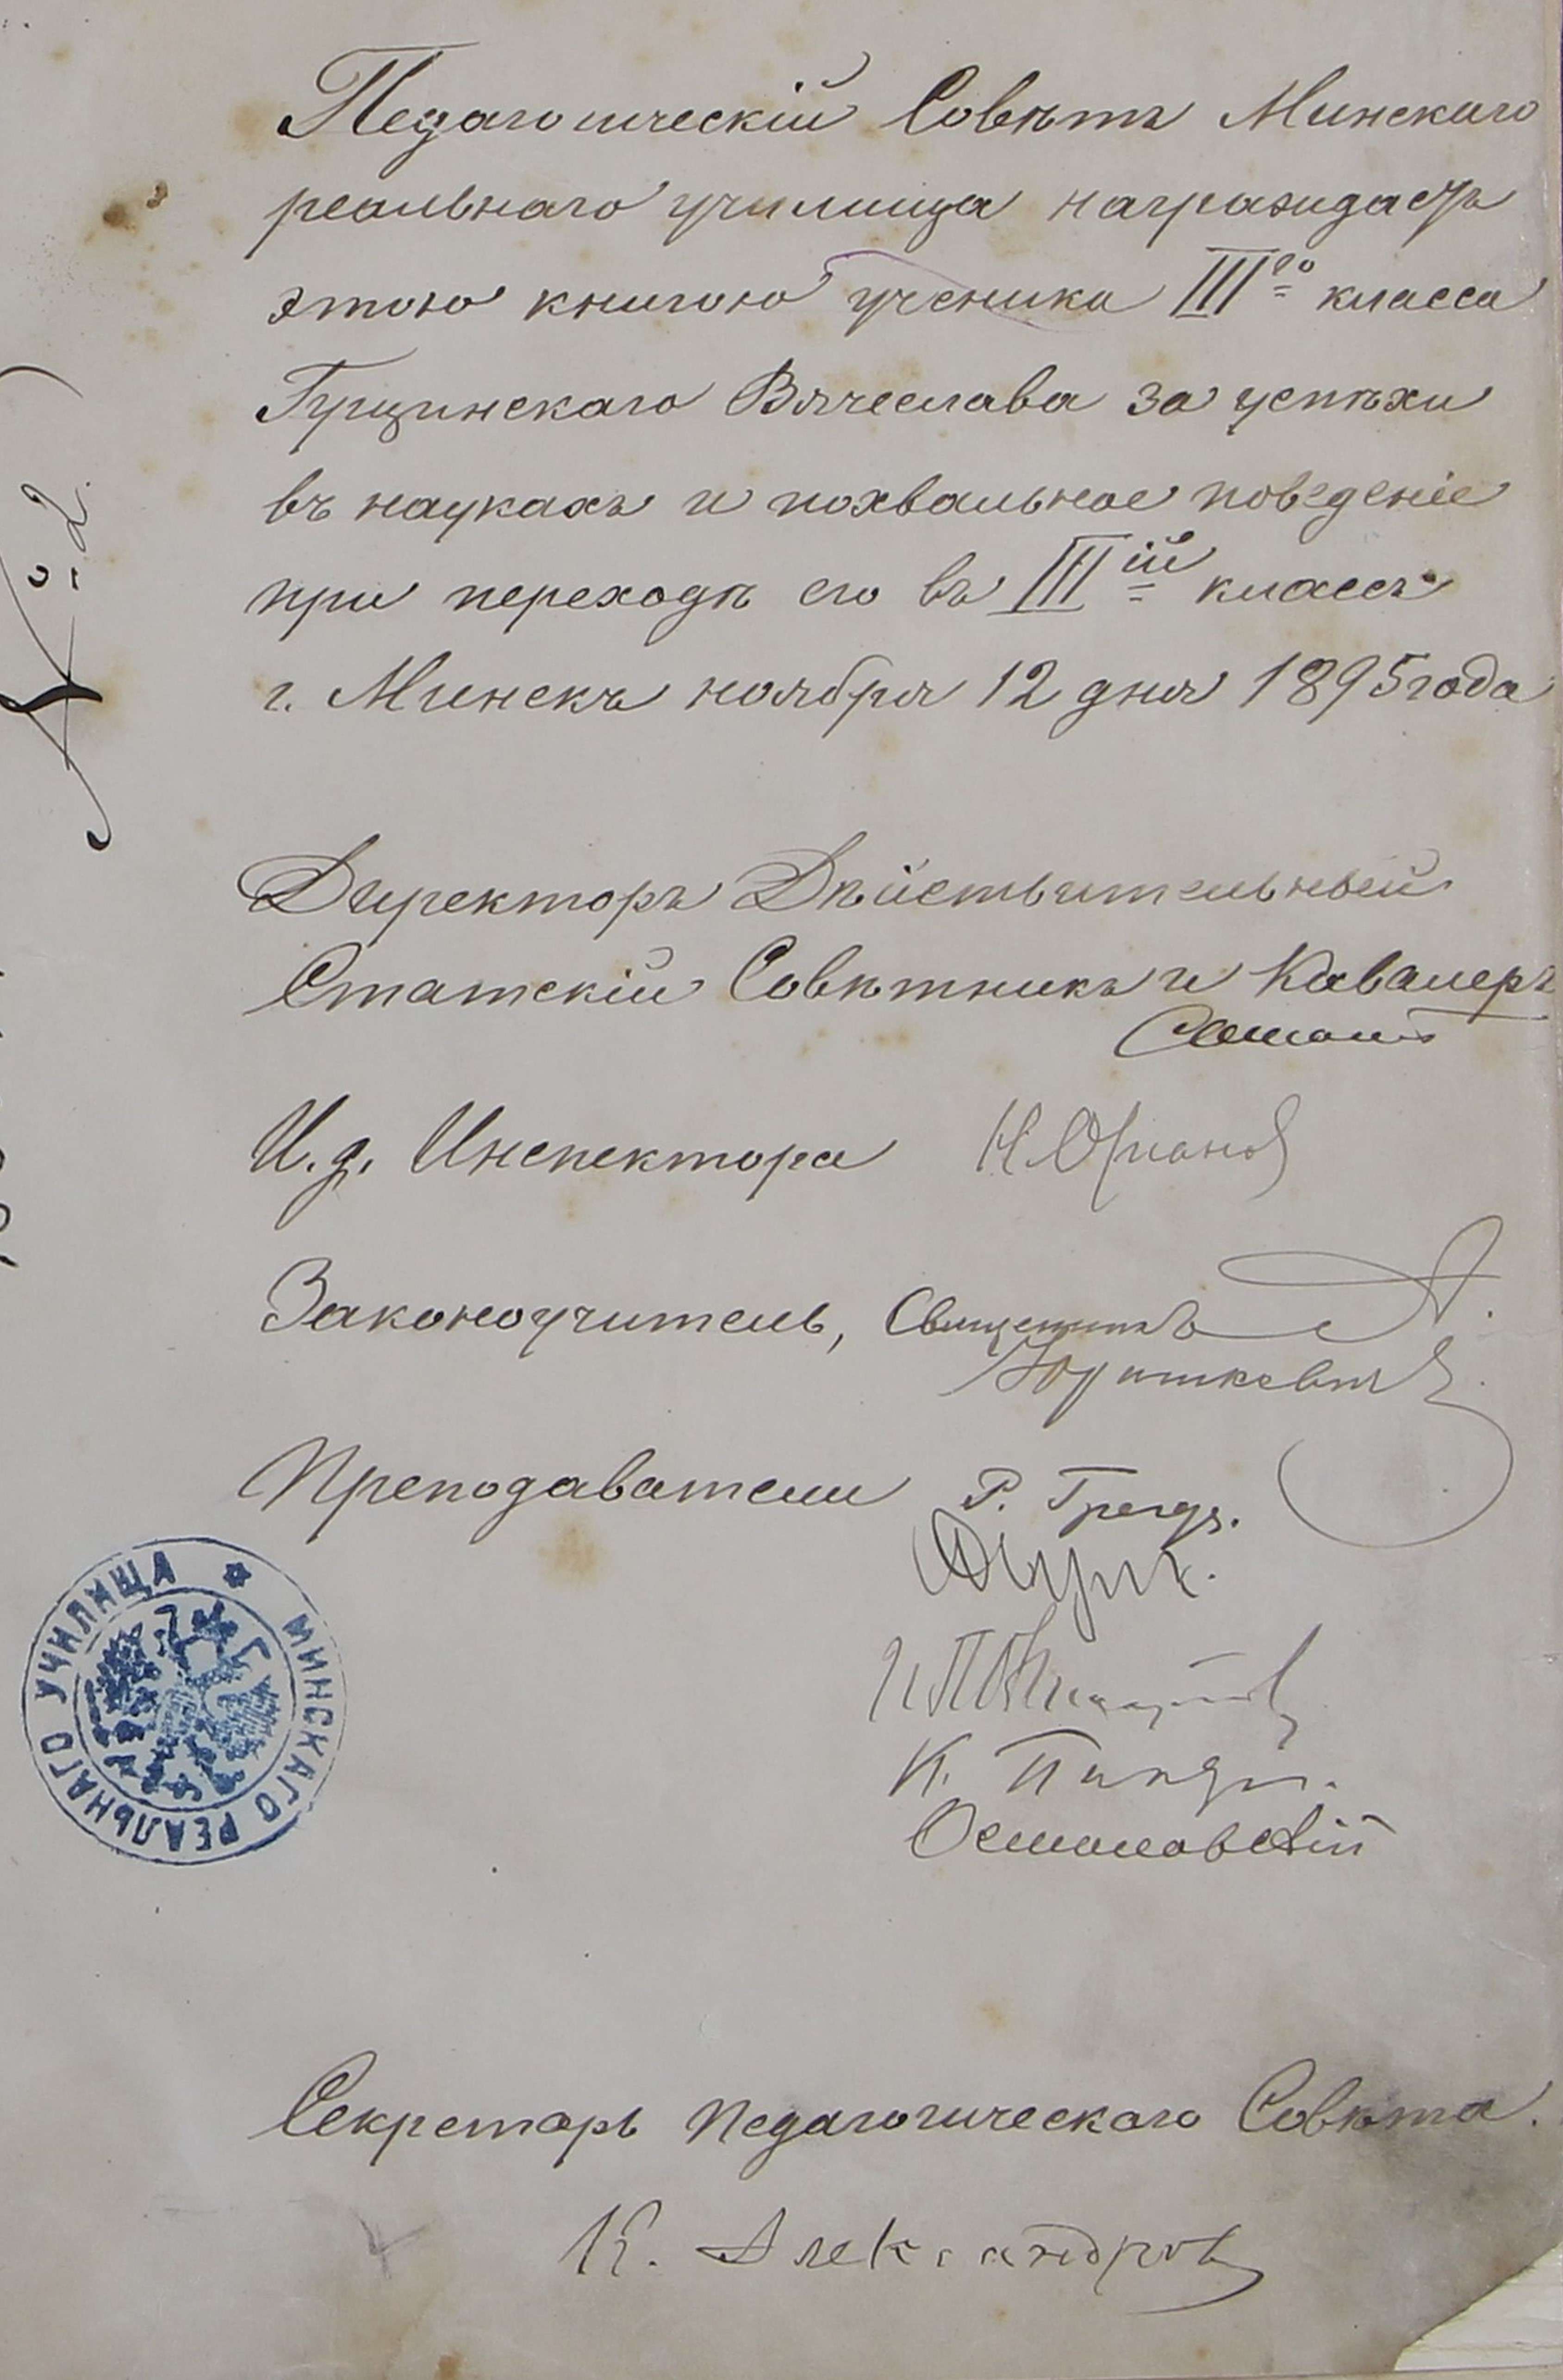 Педагогическій Совѣтъ Минскаго
реальнаго училища награждаетъ
этою книгою ученика III го класса
Гущинскаго Вячеслава за успѣхи
въ наукахъ и похвальное поведеніе
при переходѣ его въ III ій классъ
г. Минскъ ноября 12 дня 1895 года
Директоръ Дѣйствительный
Статскій Совѣтникъ и Кавалеръ
И. д. Инспектора
Законоучитель, Священникъ А.
Юришкевичъ
Преподаватели Р.
К.
Осмоловскій
МИНСКАГО РЕАЛЬНАГО УЧИЛИЩА
Секретарь Педагогическаго Совѣта.
К. Александровъ
№ 2.